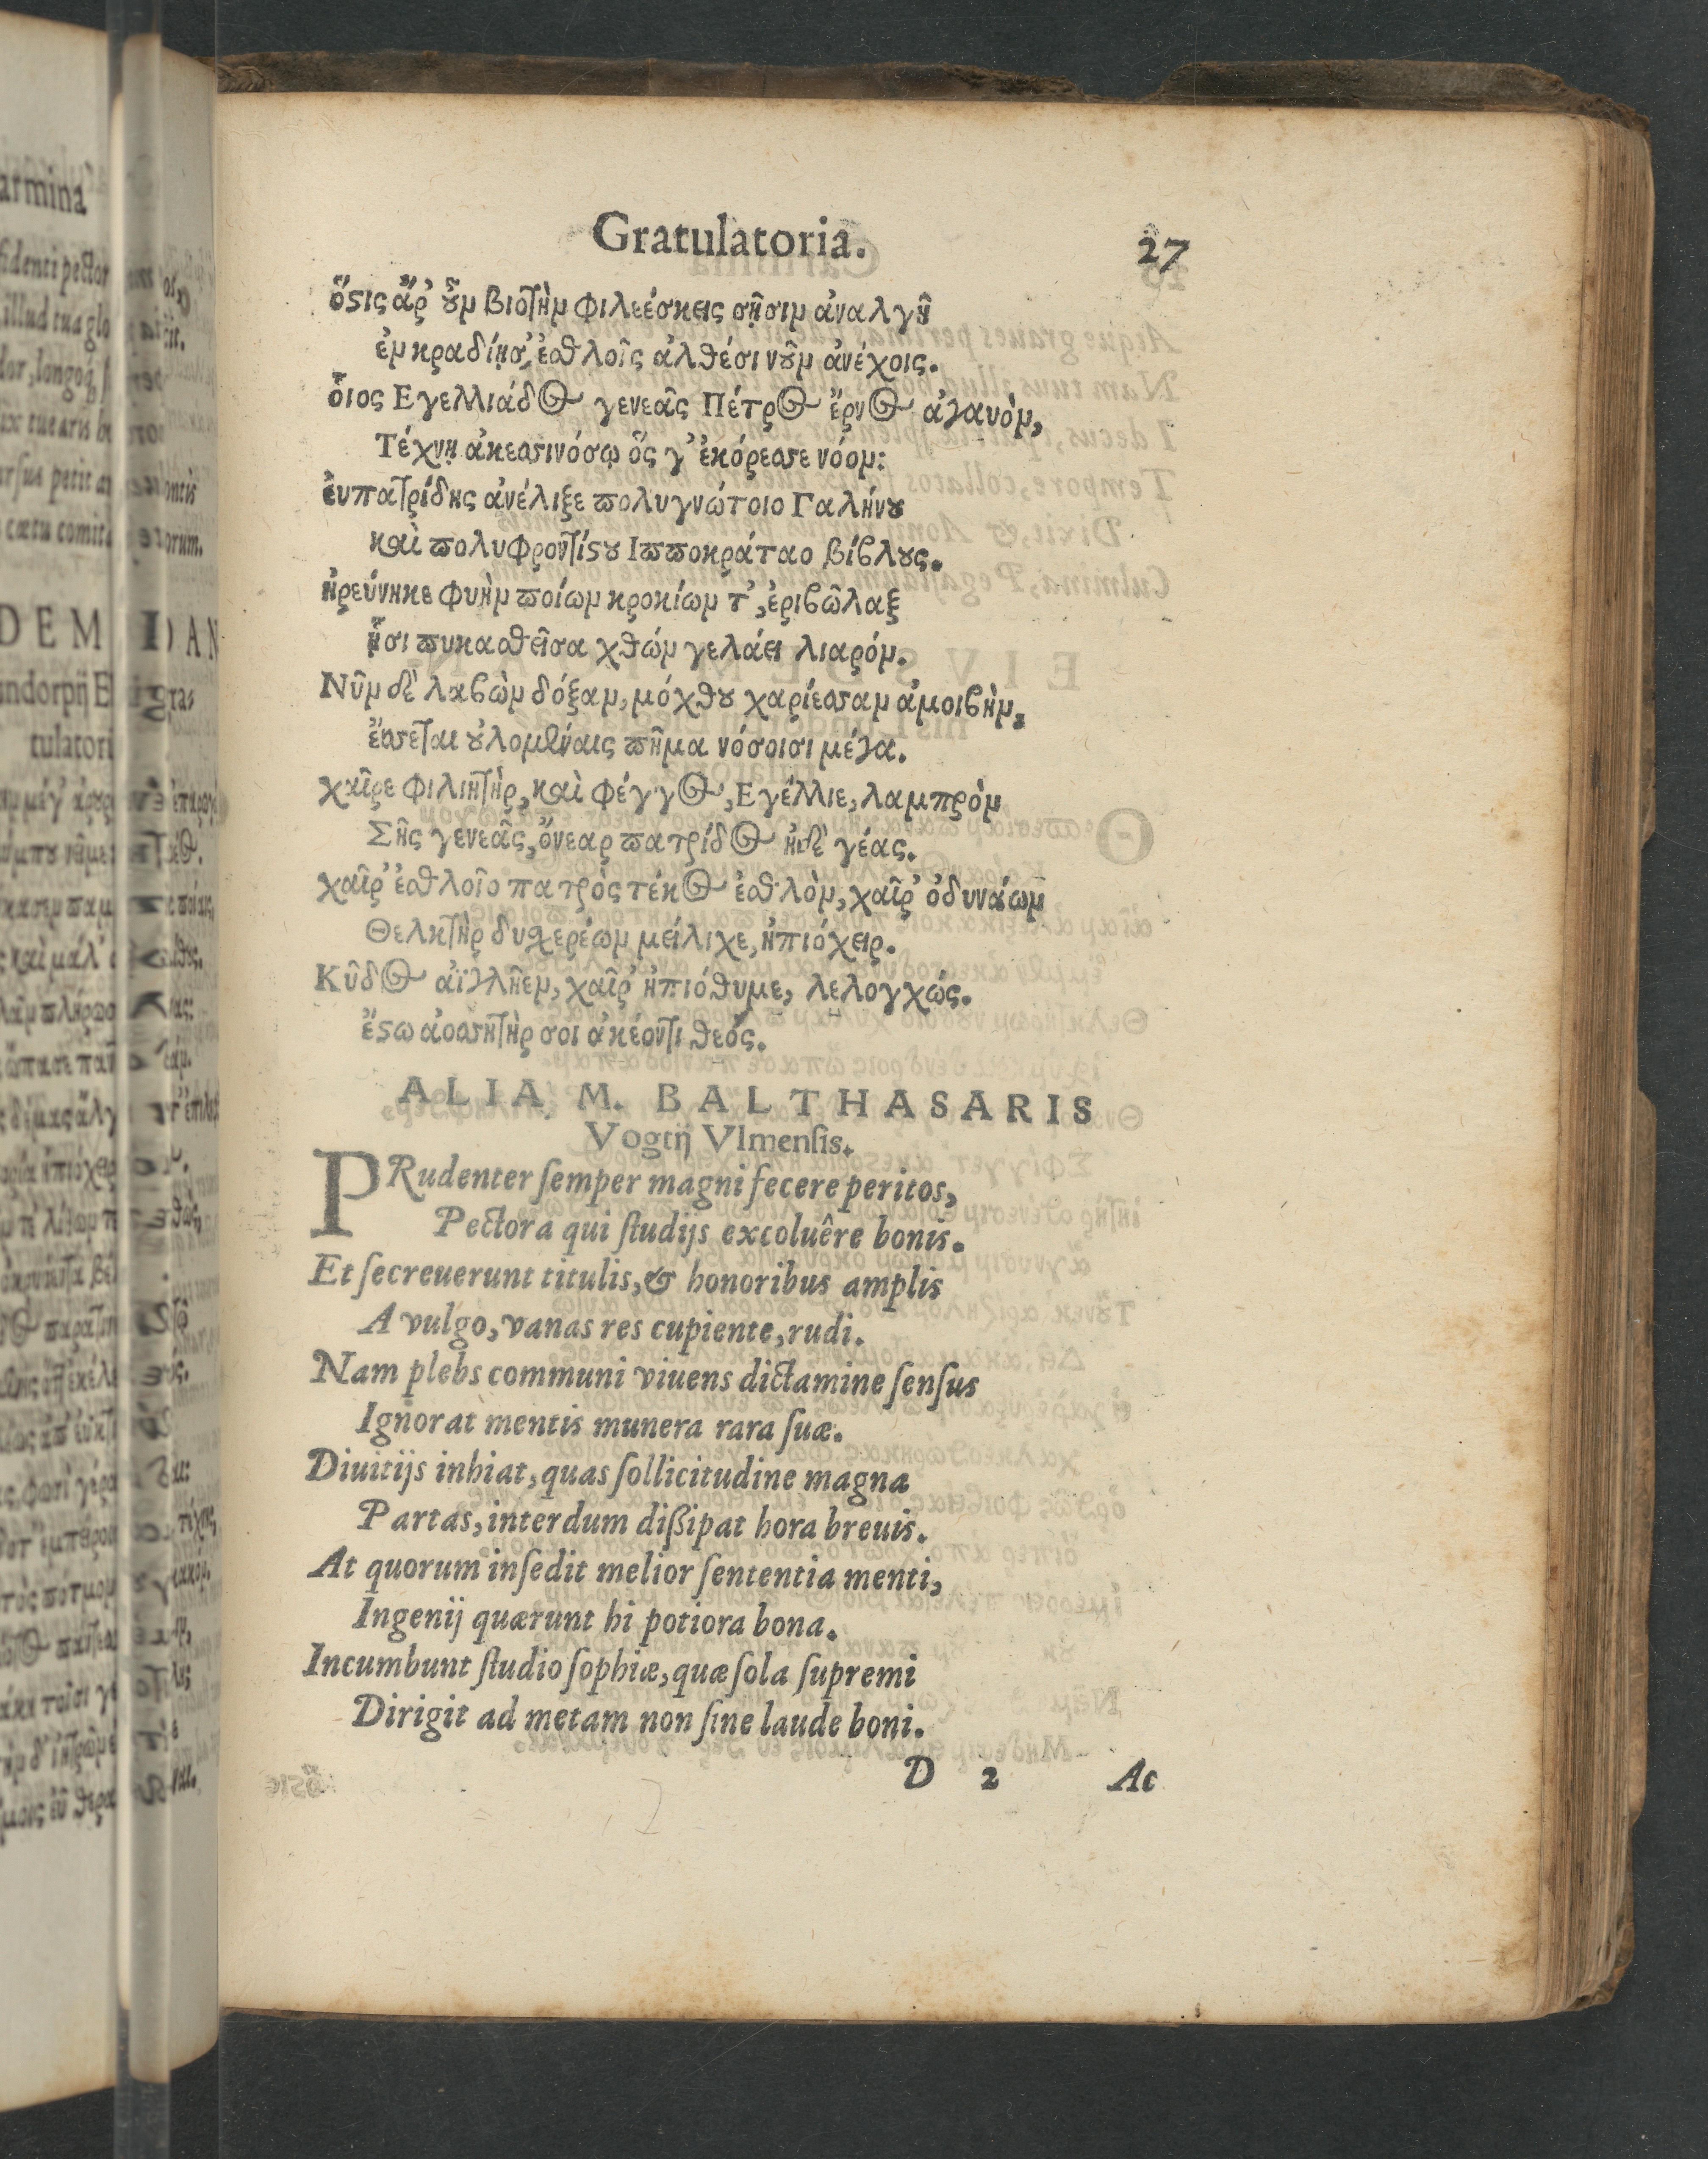 Gratulatoria. 27
ὅστις ἄρ' οὖν βιοτὴν φιλεέσκεις σῇσιν ἀναλγῆ
ἐν κραδίῃσ', ἐσθλοῖς ἀλθέσι νοῦν ἀνέχοις.
ὅιος Εγελλιάδος γενεᾶς Πέτρος ἔρνος ἀγαυὸν,
Τέχνῃ ἀκεσσινόσῳ ὅς γ' ἐκόρεσσε νόον:
ἐυπατρίδης ἀνέλιξε πολυγνώτοιο Γαλήνου
καὶ πολυφροντίστου Ιπποκράταο βίβλους.
ἠρεύνηκε φυὴν ποίων κροκίων τ', ἐριβῶλαξ
ᾗσι πυκασθεῖσα χθών γελάει λιαρόν.
Νῦν δὲ λαβὼν δόξαν, μόχθου χαρίεσσαν ἀμοιβὴν,
ἔσσεται οὐλομέναις πῆμα νόσοισι μέγα.
χαῖρε φιλιητὴρ, καὶ φέγγος, Εγέλλιε, λαμπρὸν
Σῆς γενεᾶς, ὄνεαρ πατρίδος ἠδὲ γέας.
χαῖρ' ἐσθλοῖο πατρὸς τέκος ἐσθλὸν, χαῖρ' ὀδυνάων
Θελκτὴρ δυσχερέων μείλιχε, ἠπιόχειρ.
Κῦδος αἰγλῆεν, χαῖρ' ἠπιόθυμε, λελογχώς.
ἔστω ἀοσσητὴρ σοι ἀκέοντι θεός.
ALIA M. BALTHASARIS
Vogtij Vlmensis.
PRudenter semper magni fecere peritos,
Pectora qui studijs excoluêre bonis.
Et secreuerunt titulis, & honoribus amplis
A vulgo, vanas res cupiente, rudi.
Nam plebs communi viuens dictamine sensus
Ignorat mentis munera rara suæ.
Diuitijs inhiat, quas sollicitudine magna
Partas, interdum dißipat hora breuis.
At quorum insedit melior sententia menti,
Ingenij quærunt hi potiora bona.
Incumbunt studio sophiæ, quæ sola supremi
Dirigit ad metam non sine laude boni.
D 2 Ac